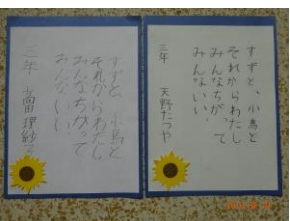 すずと、小鳥と
それからわたし
みんなちがって
みんないい。
三年 天野たつや
すずと 小鳥と
それからわたし
みんなちがって
みんないい
三年